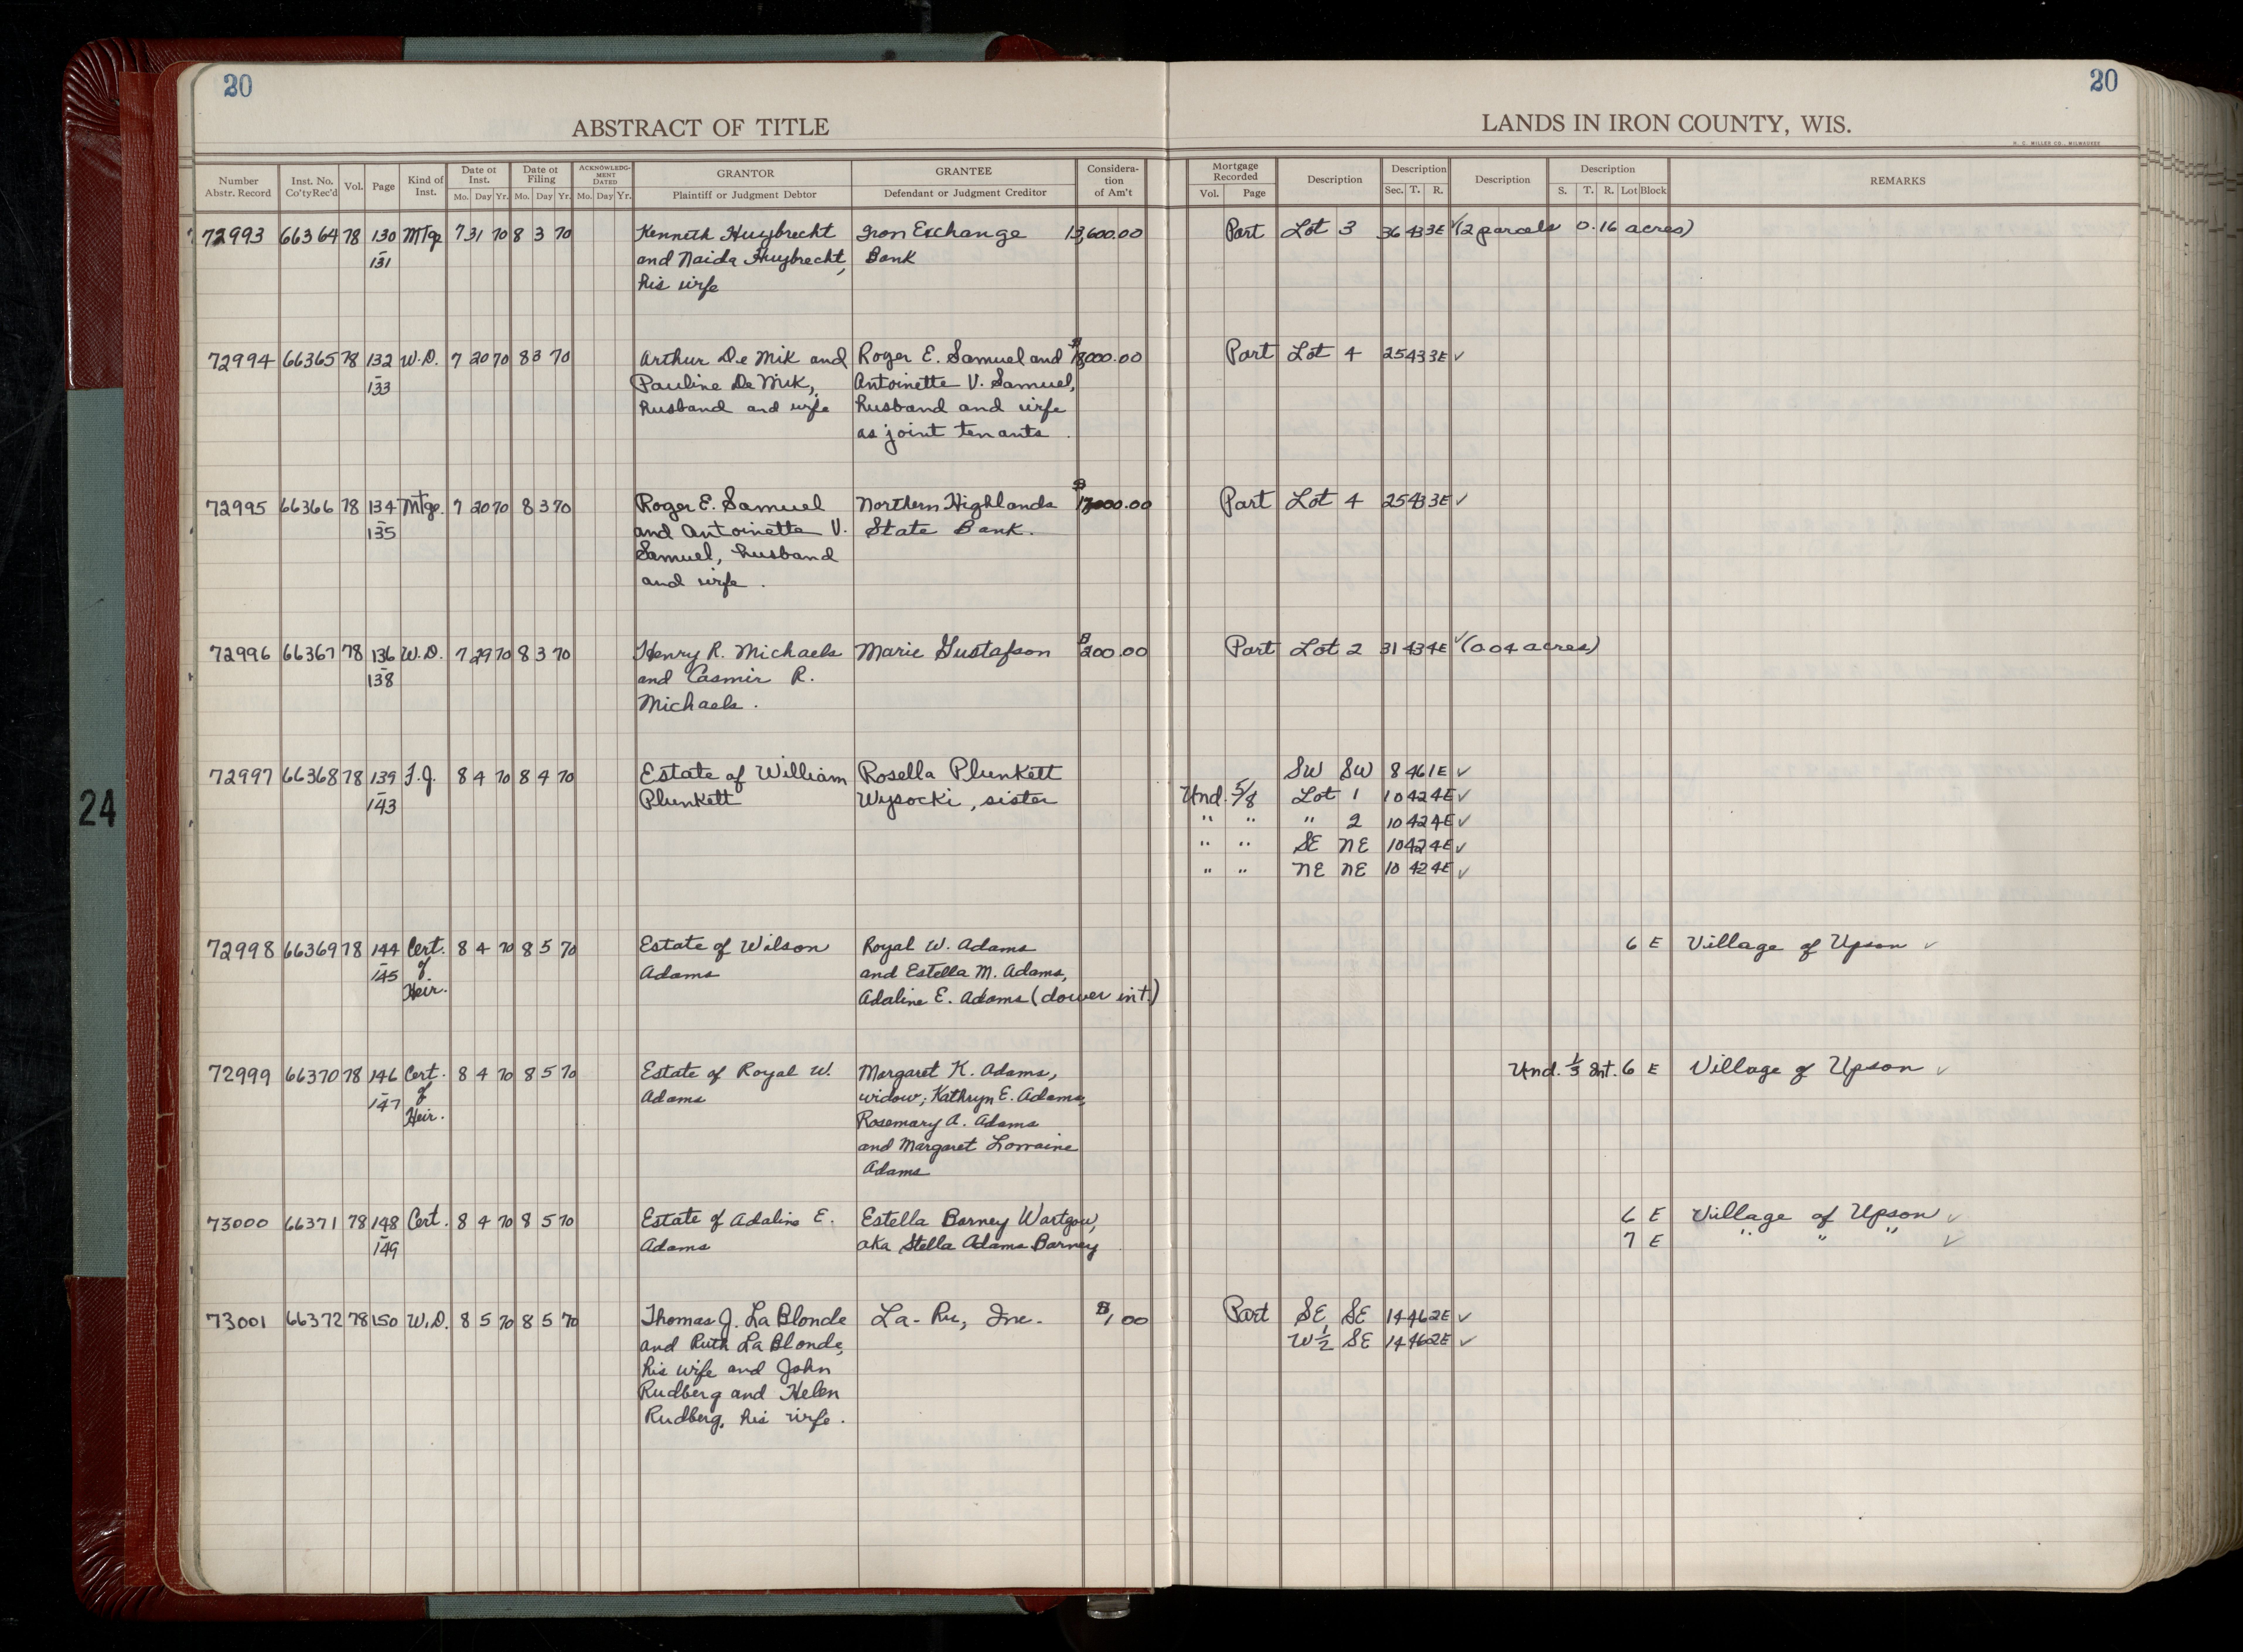 20
20
ABSTRACT OF TITLE
LANDS IN IRON COUNTY, WIS.
H. C. MILLER CO., MILWAUKEE
Number Abstr. Record Inst. No. Co'ty Rec'd Vol. Page Kind of Inst. Date of Inst. Mo. Day Yr. Date of Filing Mo. Day Yr. ACKNOWLEDGMENT DATED Mo. Day Yr. GRANTOR Plaintiff or Judgment Debtor GRANTEE Defendant or Judgment Creditor Consideration of Am't Mortgage Recorded Vol. Page Description Description Sec. T. R. Description Description S. T. R. Lot Block REMARKS
72993 66364 78 130 Mtge 7 31 70 8 3 70 Kenneth Huybrecht Iron Exchange 13,600.00 Part Lot 3 36 43 3E ✓(2 parcels 0.16 acres)
131 and Naida Huybrecht, Bank
his wife
72994 66365 78 132 W.D. 7 20 70 8 3 70 Arthur De Mik and Roger E. Samuel and $ 000.00 Part Lot 4 25 43 3E ✓
133 Pauline De Mik, Antoinette V. Samuel,
husband and wife husband and wife
as joint tenants.
72995 66366 78 134 Mtge. 7 20 70 8 3 70 Roger E. Samuel Northern Highlands $ 000.00 Part Lot 4 25 43 3E ✓
135 and Antoinette V. State Bank.
Samuel, husband
and wife.
72996 66367 78 136 W.D. 7 29 70 8 3 70 Henry R. Michaels Marie Gustafson $200.00 Part Lot 2 31 43 4E ✓(0.04 acres)
138 and Casmir R.
Michaels.
72997 66368 78 139 F.J. 8 4 70 8 4 70 Estate of William Rosella Plunkett SW SW 8 46 1E ✓
143 Plunkett Wysocki, sister Und. 5/8 Lot 1 10 42 4E ✓
" " " 2 10 42 4E ✓
" " SE NE 10 42 4E ✓
" " NE NE 10 42 4E ✓
24
72998 66369 78 144 Cert. 8 4 70 8 5 70 Estate of Wilson Royal W. Adams 6 E Village of Upson ✓
145 of Adams and Estella M. Adams,
Heir. Adaline E. Adams (dower int.)
72999 66370 78 146 Cert. 8 4 70 8 5 70 Estate of Royal W. Margaret K. Adams, Und. 1/3 Int. 6 E Village of Upson ✓
147 of Adams widow; Kathryn E. Adams,
Heir. Rosemary A. Adams
and Margaret Lorraine
Adams
73000 66371 78 148 Cert. 8 4 70 8 5 70 Estate of Adaline E. Estella Barney Wartgow, 6 E Village of Upson ✓
149 Adams aka Stella Adams Barney 7 E " " " ✓
73001 66372 78 150 W.D. 8 5 70 8 5 70 Thomas J. La Blonde La-Ru, Inc. $1.00 Part SE SE 14 46 2E ✓
and Ruth La Blonde, W½ SE 14 46 2E ✓
his wife and John
Rudberg and Helen
Rudberg, his wife.